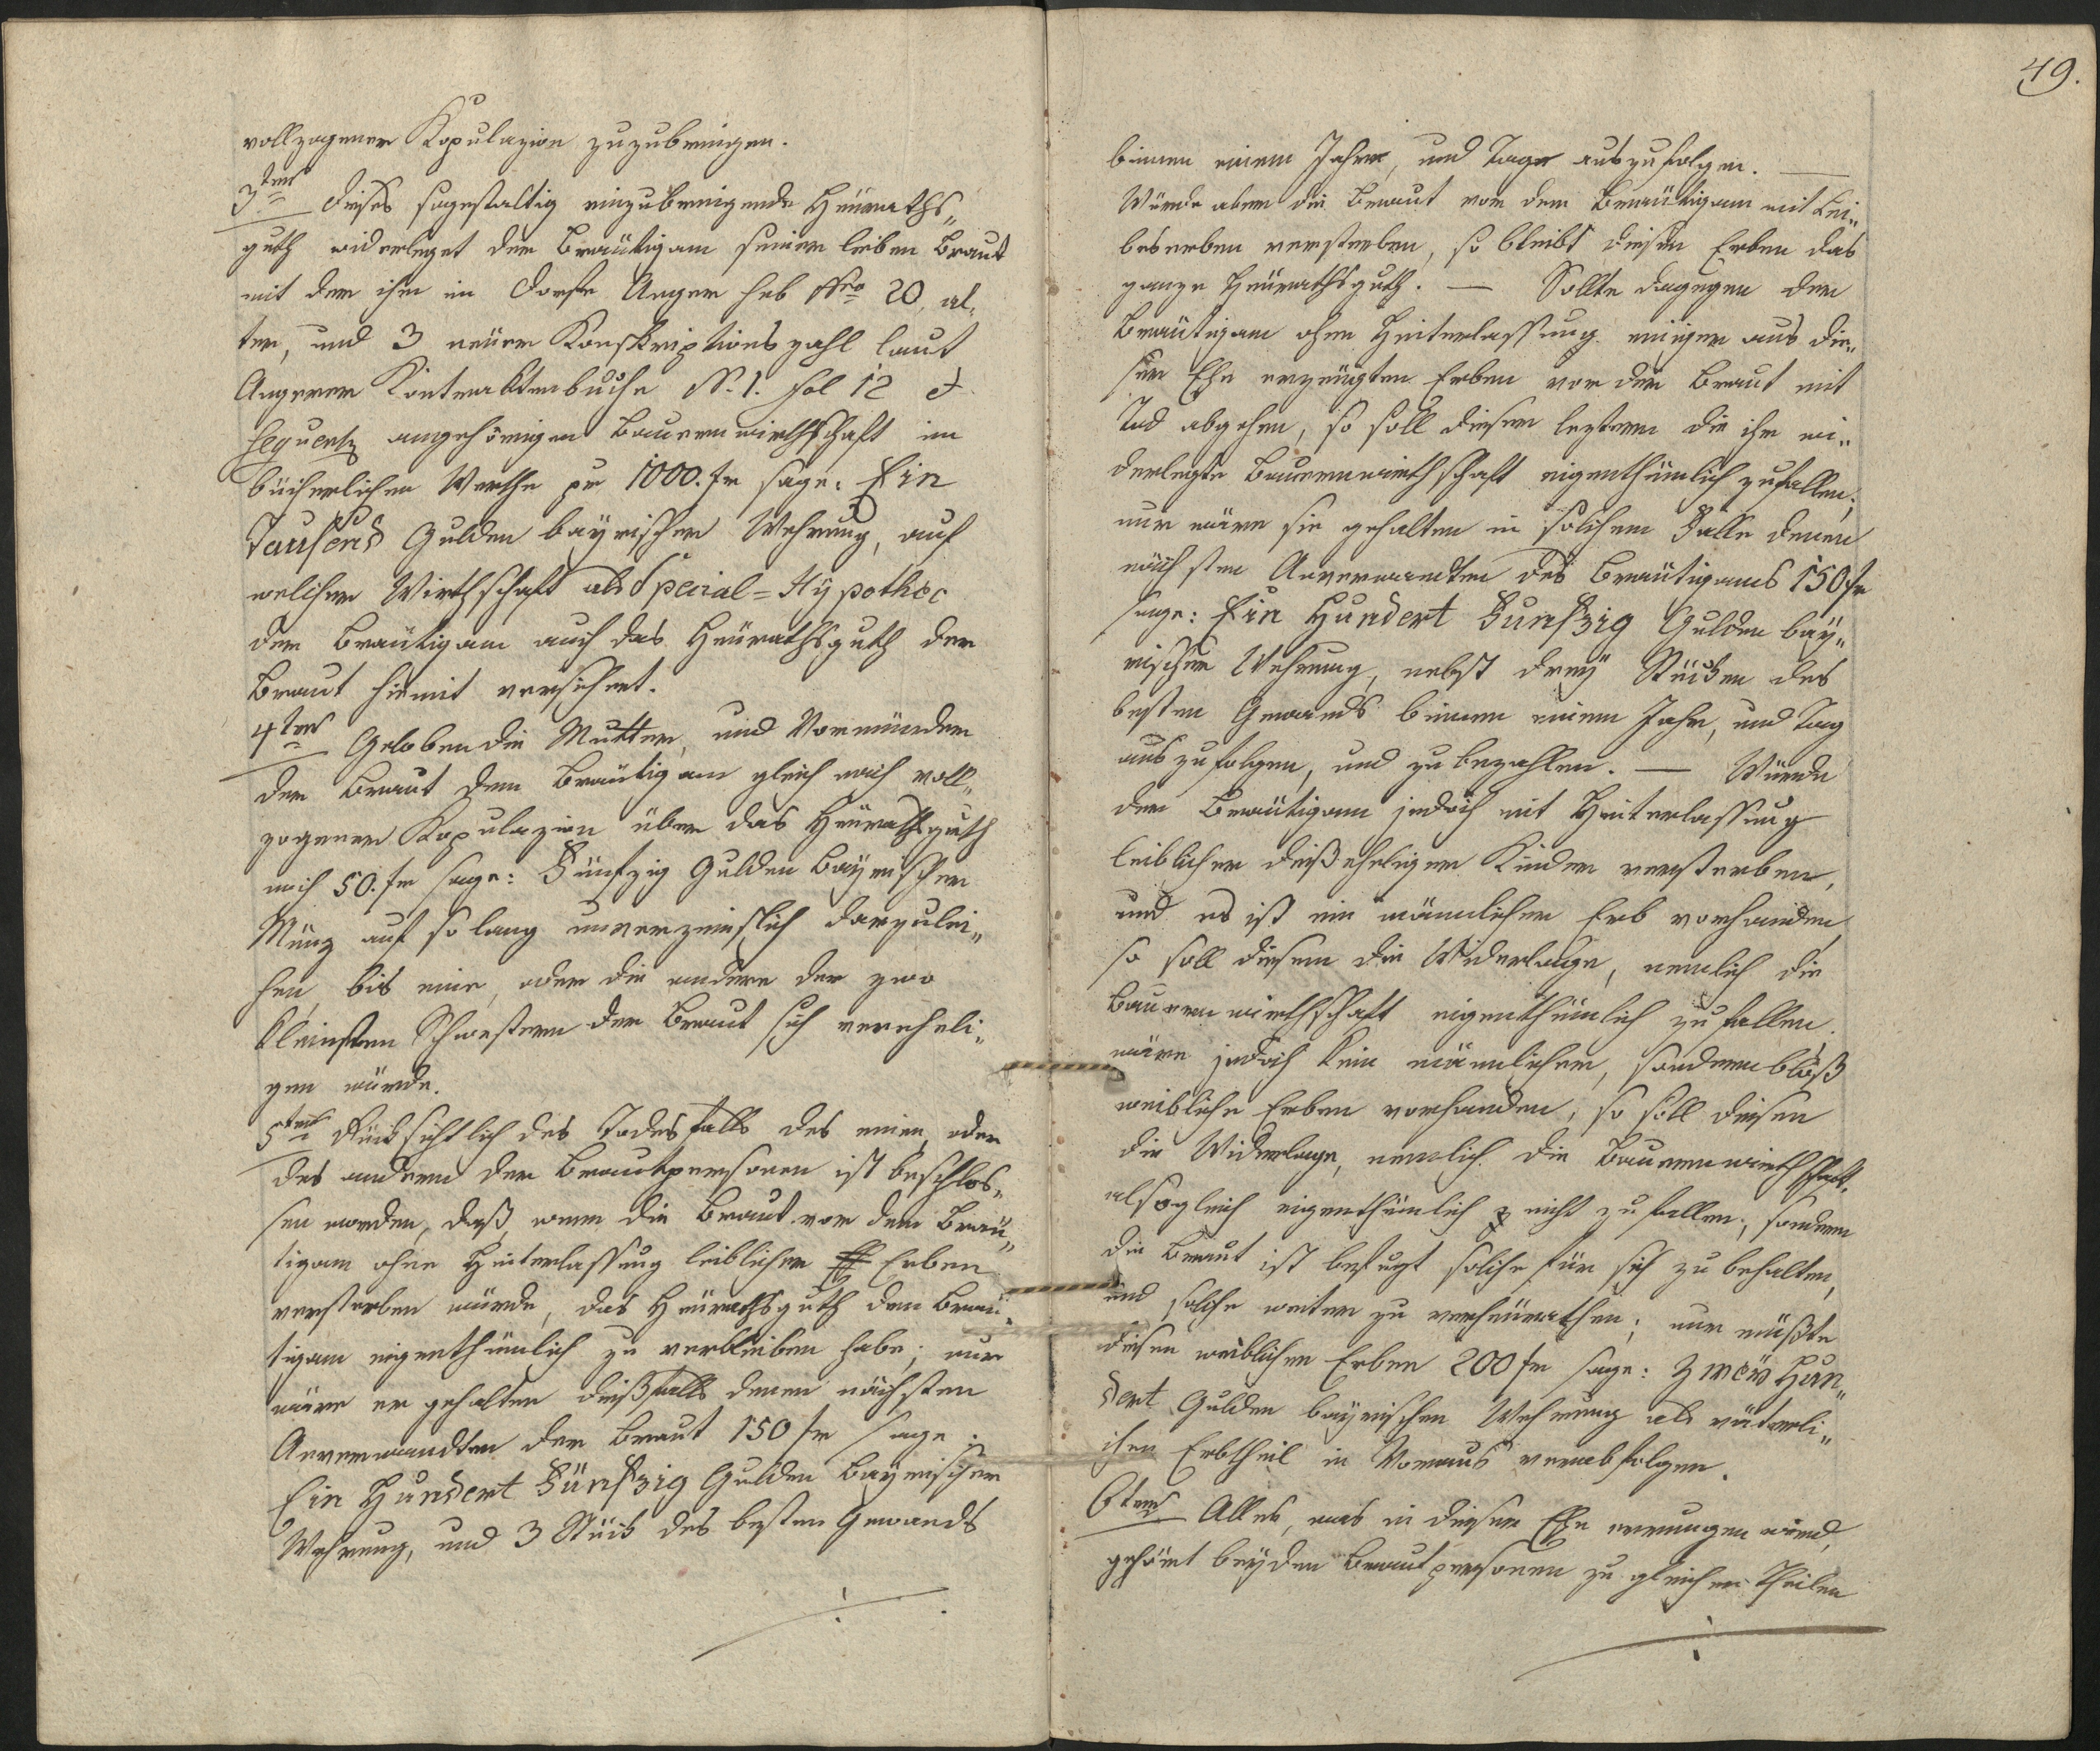 vollzogener Kopulazion zuzubringen.
3tens Dieses sogestaltig einzubringende Heuraths„
guth widerleget der Bräutigam seiner lieben Braut
mit der ihm im Dorfe Anger sub Nro 20, al„
ter, und 3 neüer Konskriptionszahl laut
Angerer Kontraktenbuche N. 1. fol 12 et
sequentz angehörigen Bauernwirthschaft im
bücherlichen Werthe pr 1000. fr sage: Ein
Tausend Gulden bayrischer Wehrung, auf
welcher Wirthschaft als Special=Hÿpothec
der Bräutigam auch das Heürathsguth der
Braut hiemit versichert.
4tens Geloben die Mutter, und Vormünder
der Braut dem Bräutigam gleich nach voll„
zogener Kopulazion über das Heürathsguth
noch 50. fr sage: Fünfzig Gulden bayrischer
Münz auf so lang unverzinslich darzulei„
hen, bis eine, oder die andere der zwo
kleinsten Schwestern der Braut sich vereheli„
gen würde.
5tens Rücksichtlich des Todesfalls des einen, oder
des andern der Brautpersonen ist beschlos„
sen worden, daß, wenn die Braut vor dem Bräu„
tigam ohne Hinterlassung leiblicher Erben
versterben würde, das Heürathsguth dem Bräu„
tigam eigenthümlich zu verbleiben habe; nur
wäre er gehalten dießfalls denen nächsten
Anverwandten der Braut 150 fr sage:
Ein Hundert Fünfzig Gulden bayrischer
Wehrung, und 3 Stück des besten Gewands
49.
binnen einem Jahre, und Tage auszufolgen. —
Würde aber die Braut vor dem Bräutigam mit Lei„
beserben versterben, so bleibt diesen Erben das
ganze Heürathsguth. — Sollte dagegen der
Bräutigam ohne Hinterlassung einiger aus die„
ser Ehe erzeugten Erben vor der Braut mit
Tod abgehen, so soll dieser leztern die ihr wi„
derlegte Bauernwirthschaft eigenthümlich zufallen;
nur wäre sie gehalten in solchem Falle denen
nächsten Anverwandten des Bräutigams 150 fr
sage: Ein Hundert Funfzig Gulden baÿ„
rischer Wehrung, nebst dreÿ Stücken des
besten Gewands binnen einem Jahr, und Tag
auszufolgen, und zu bezahlen. — Würde
der Bräutigam jedoch mit Hinterlassung
leiblicher dießeheligen Kinder versterben,
und es ist ein männlicher Erb vorhanden,
so soll diesem die Widerlage, nemlich die
Bauernwirthschaft eigenthümlich zufallen.
wäre jedoch kein männlicher, sondern bloß
weibliche Erben vorhanden, so soll diesen
die Widerlage, nemlich die Bauernwirthschaft
alsogleich eigenthümlich nicht zufallen, sondern
die Braut ist befugt solche für sich zu behalten,
und solche weiter zu verheürathen; nur müßte
diesen weiblichen Erben 200 fr sage: Zweÿ Hun„
dert Gulden bayrischer Wehrung als väterli„
chen Erbtheil in Voraus verabfolgen.
6tens Alles, was in dieser Ehe errungen wird,
gehört beÿden Brautpersonen zu gleichen Theilen